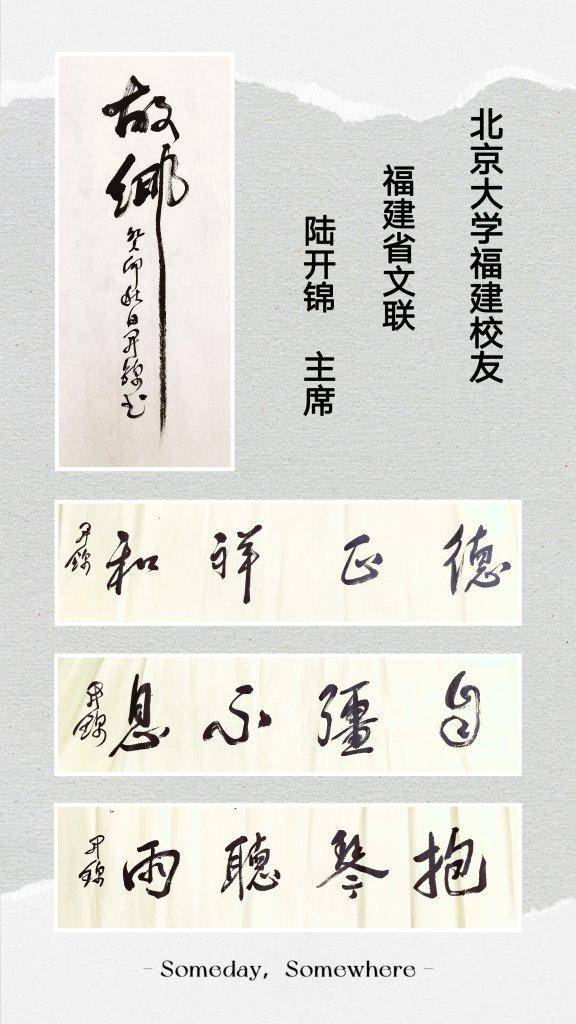 北京大学福建校友
福建省文联
陆开锦 主席
故鄉
癸卯秋日开锦书
德正祥和
开锦
自彊不息
开锦
抱琴聽雨
开锦
- Someday, Somewhere -